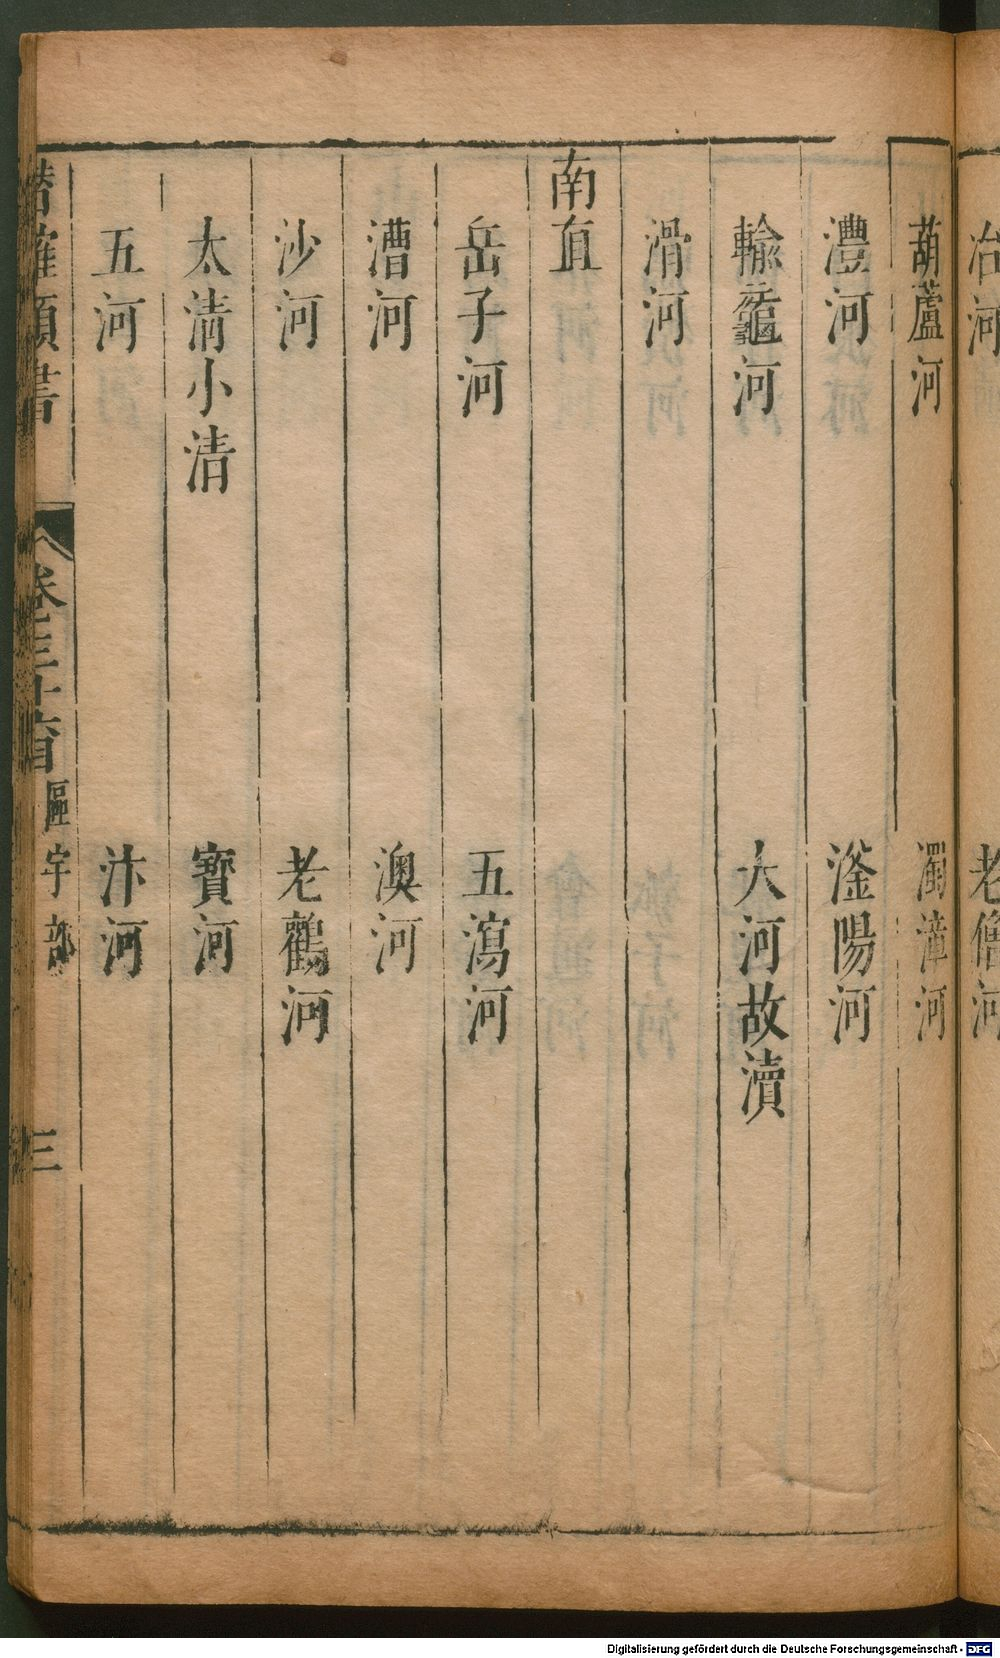 冶河 老僧河
葫蘆河 濁漳河
灃河 滏陽河
輸黿河 大河故瀆
滑河
南直
岳子河 五瀉河
漕河 澳河
沙河 老鸛河
太清小清 寶河
五河 汴河
潛確類書 卷三十首 區宇部 三
Digitalisierung gefördert durch die Deutsche Forschungsgemeinschaft - DFG